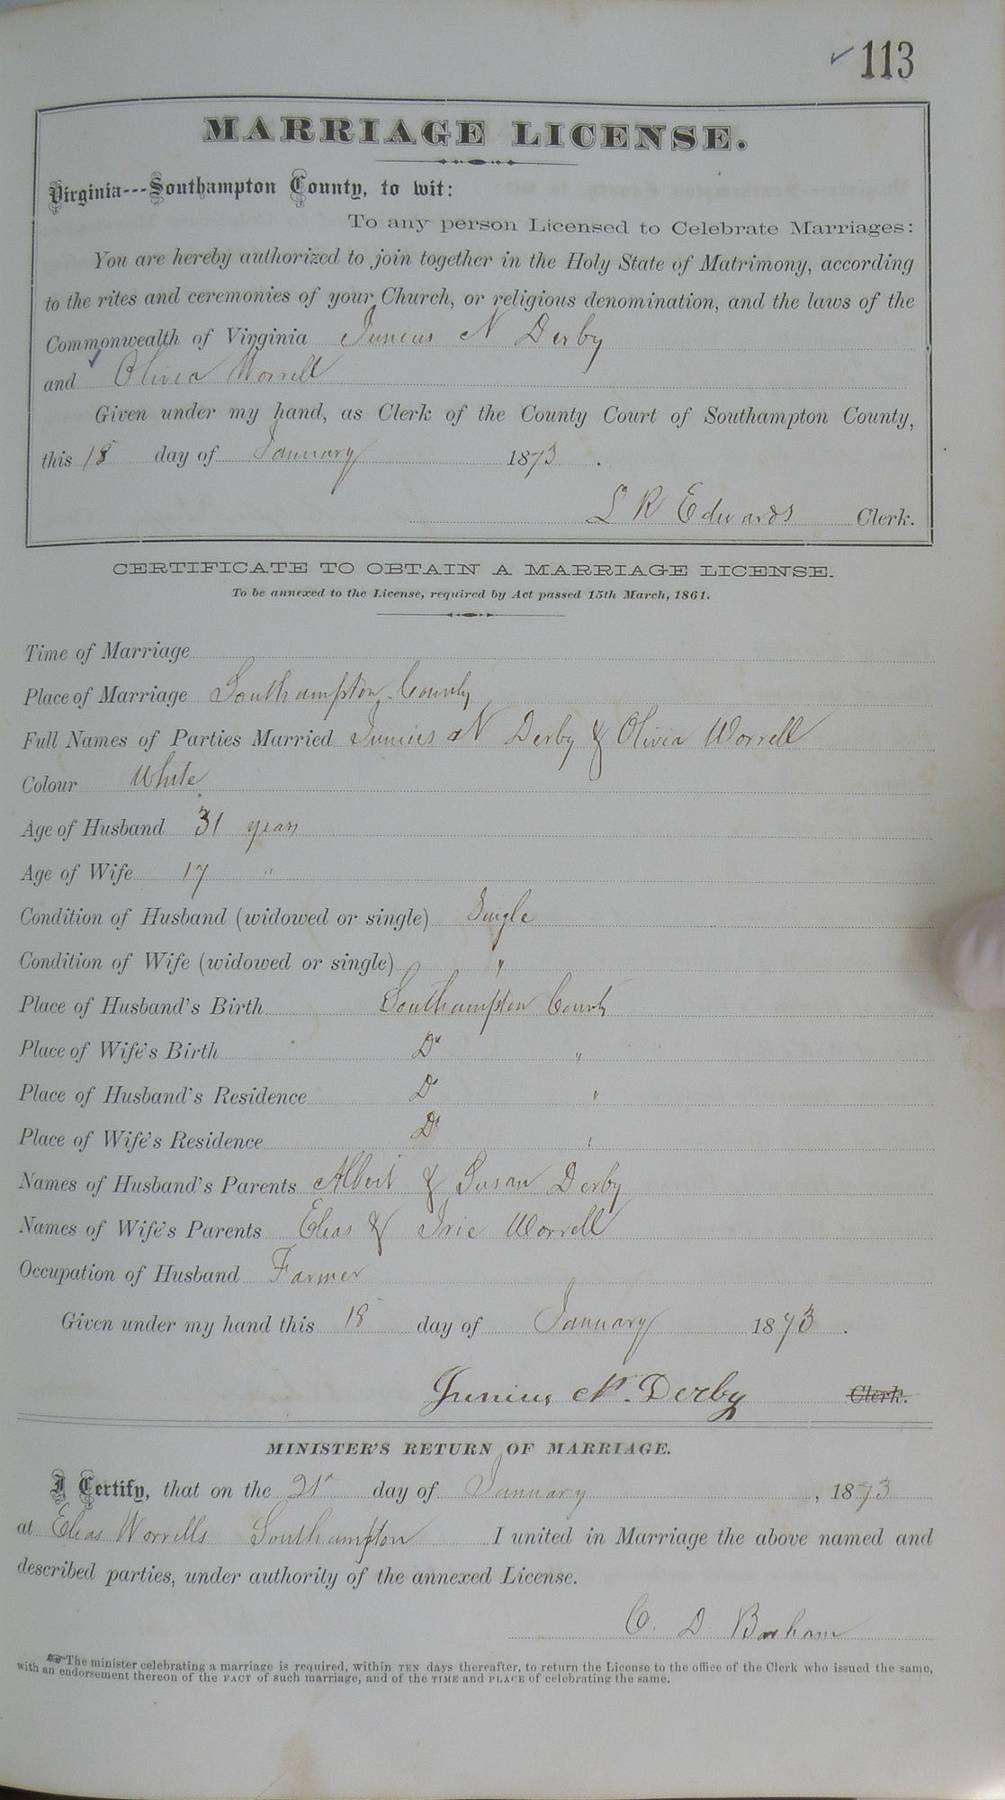 ✓ 113
MARRIAGE LICENSE.
Virginia---Southampton County, to wit:
To any person Licensed to Celebrate Marriages:
You are hereby authorized to join together in the Holy State of Matrimony, according
to the rites and ceremonies of your Church, or religious denomination, and the laws of the
Commonwealth of Virginia Junius N Derby
and Olivia Worrell
Given under my hand, as Clerk of the County Court of Southampton County,
this 18 day of January 1873.
L R Edwards Clerk.
CERTIFICATE TO OBTAIN A MARRIAGE LICENSE.
To be annexed to the License, required by Act passed 15th March, 1861.
Time of Marriage
Place of Marriage Southampton County
Full Names of Parties Married Junius N Derby & Olivia Worrell
Colour White
Age of Husband 31 years
Age of Wife 17 "
Condition of Husband (widowed or single) Single
Condition of Wife (widowed or single) "
Place of Husband's Birth Southampton County
Place of Wife's Birth Do "
Place of Husband's Residence Do "
Place of Wife's Residence Do "
Names of Husband's Parents Albert & Susan Derby
Names of Wife's Parents Elias & Worrell
Occupation of Husband Farmer
Given under my hand this 18 day of January 1873.
Junius N. Derby Clerk.
MINISTER'S RETURN OF MARRIAGE.
I Certify, that on the 21st day of January, 1873
at Elias Worrells Southampton I united in Marriage the above named and
described parties, under authority of the annexed License.
C. D. Barham
☞ The minister celebrating a marriage is required, within TEN days thereafter, to return the License to the office of the Clerk who issued the same,
with an endorsement thereon of the FACT of such marriage, and of the TIME and PLACE of celebrating the same.